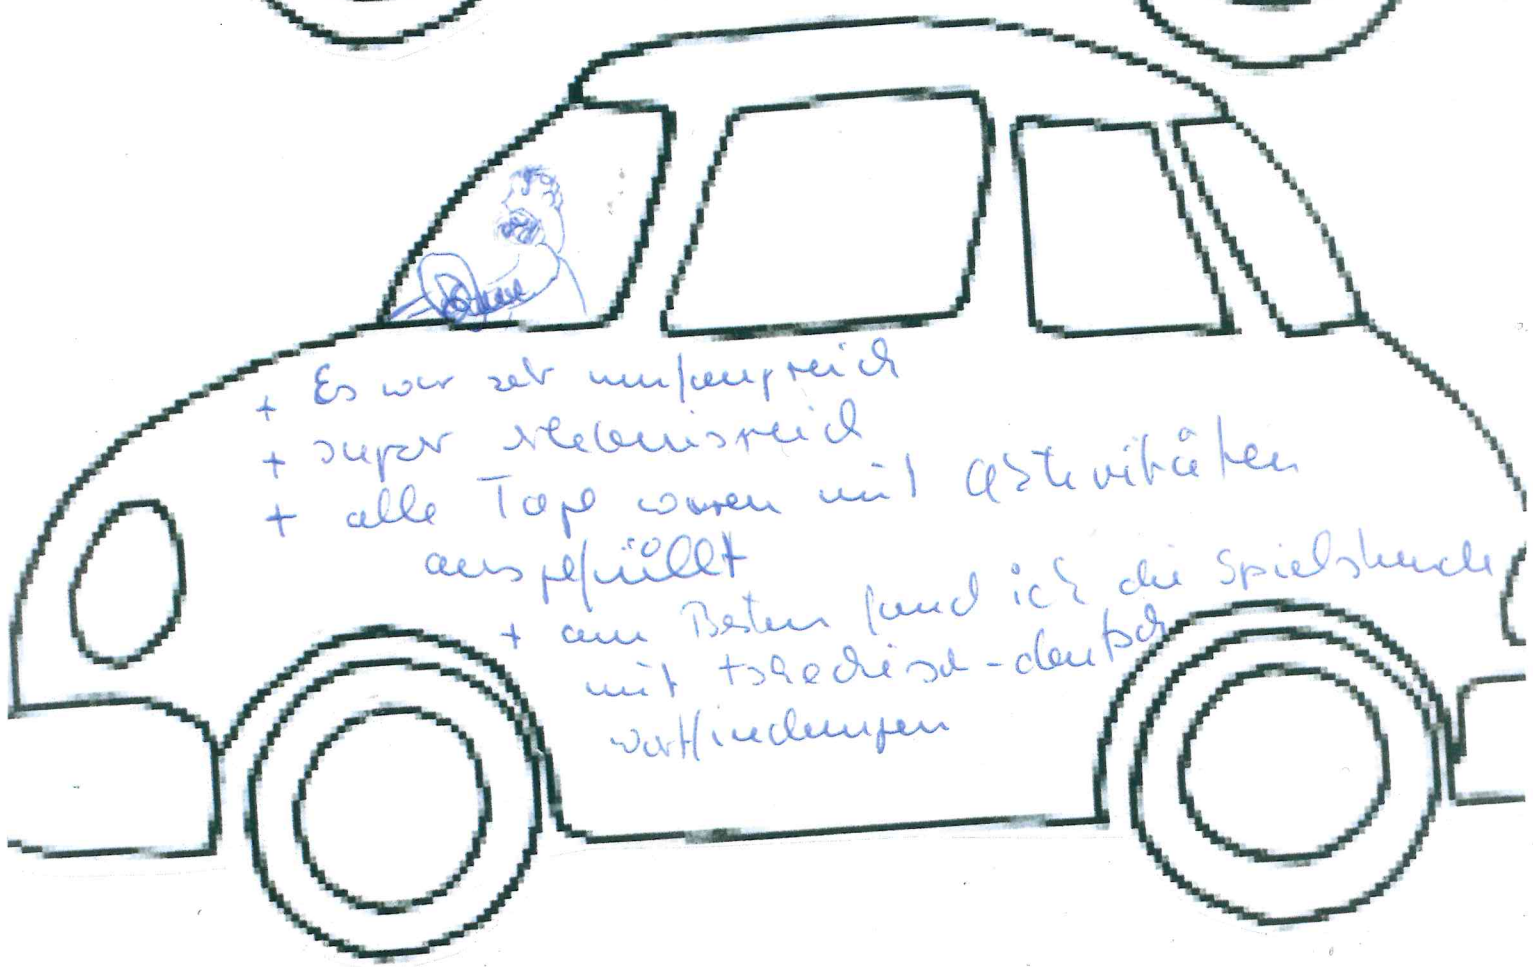 + Es war sehr umfangreich
+ super erlebnisreich
+ alle Tage waren mit Aktivitäten
ausgefüllt
+ am Besten fand ich die Spielstunde
mit tschechisch-deutsch
Wortfindungen